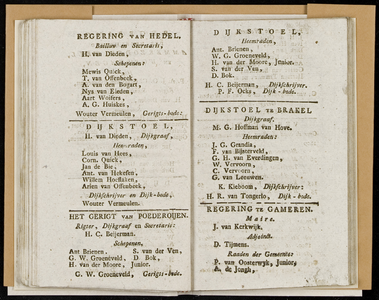 REGERING VAN HEDEL.
Bailluw en Secretaris,
H. van Dieden,
Schepenen:
Mewis Quick,
T. van Offenbeek,
A. van den Bogart,
Nys van Eielen,
Aart Wolfers,
A. G. Huiskes,
Wouter Vermeulen, Geregts-bode.
DIJKSTOEL,
H. van Dieden, Dijkgraaf,
Heemraden,
Louis van Hees,
Corn. Quick,
Jan de Bie,
Ant. van Hekesen,
Willem Hoeflaken,
Arien van Offenbeek,
Dijkschrijver en Dijk-bode,
Wouter Vermeulen.
HET GERIGT VAN POEDEROIJEN.
Rigter, Dijkgraaf en Secretaris:
H. C. Beijerman.
Schepenen,
Ant Brienen, S. van der Ven,
G. W. Groeneveld, D Bok,
H. van der Moore, Junior.
G. W. Groeneveld, Geregts-bode.
DIJKSTOEL,
Heemraden,
Ant. Brienen,
W. G. Groeneveld,
H. van der Moore, Junior,
S. van der Ven,
D. Bok.
H. C. Beijerman, Dijkschrijver.
P. F. Ocks, Dijk-bode.
DIJKSTOEL TE BRAKEL
Dijkgraaf.
M. G. Hoffman van Hove.
Heemraden:
J. G. Grandia,
F. van Bijsterveld,
G. H. van Everdingen,
W. Vervoorn,
C. Vervoorn,
G. van Leeuwen.
K. Kieboom, Dijkschrijver:
H. R. van Tongerlo, Dijk-bode.
REGERING TE GAMEREN.
Maire.
J. van Kerkwijk,
Adjunct.
D. Tijmens.
Raaden der Gemeente
P. van Oosterwyk, Junior,
A. de Jongh,